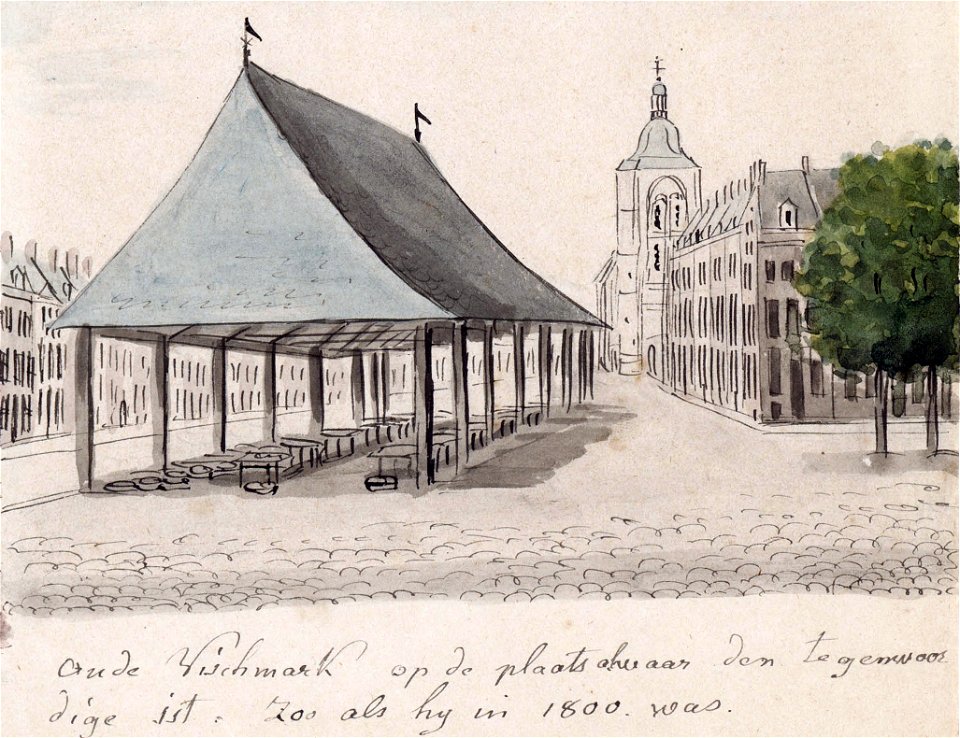 oude Vischmark op de plaats alwaar den tegenwoor
dige ist. Zoo als hy in 1800. was.